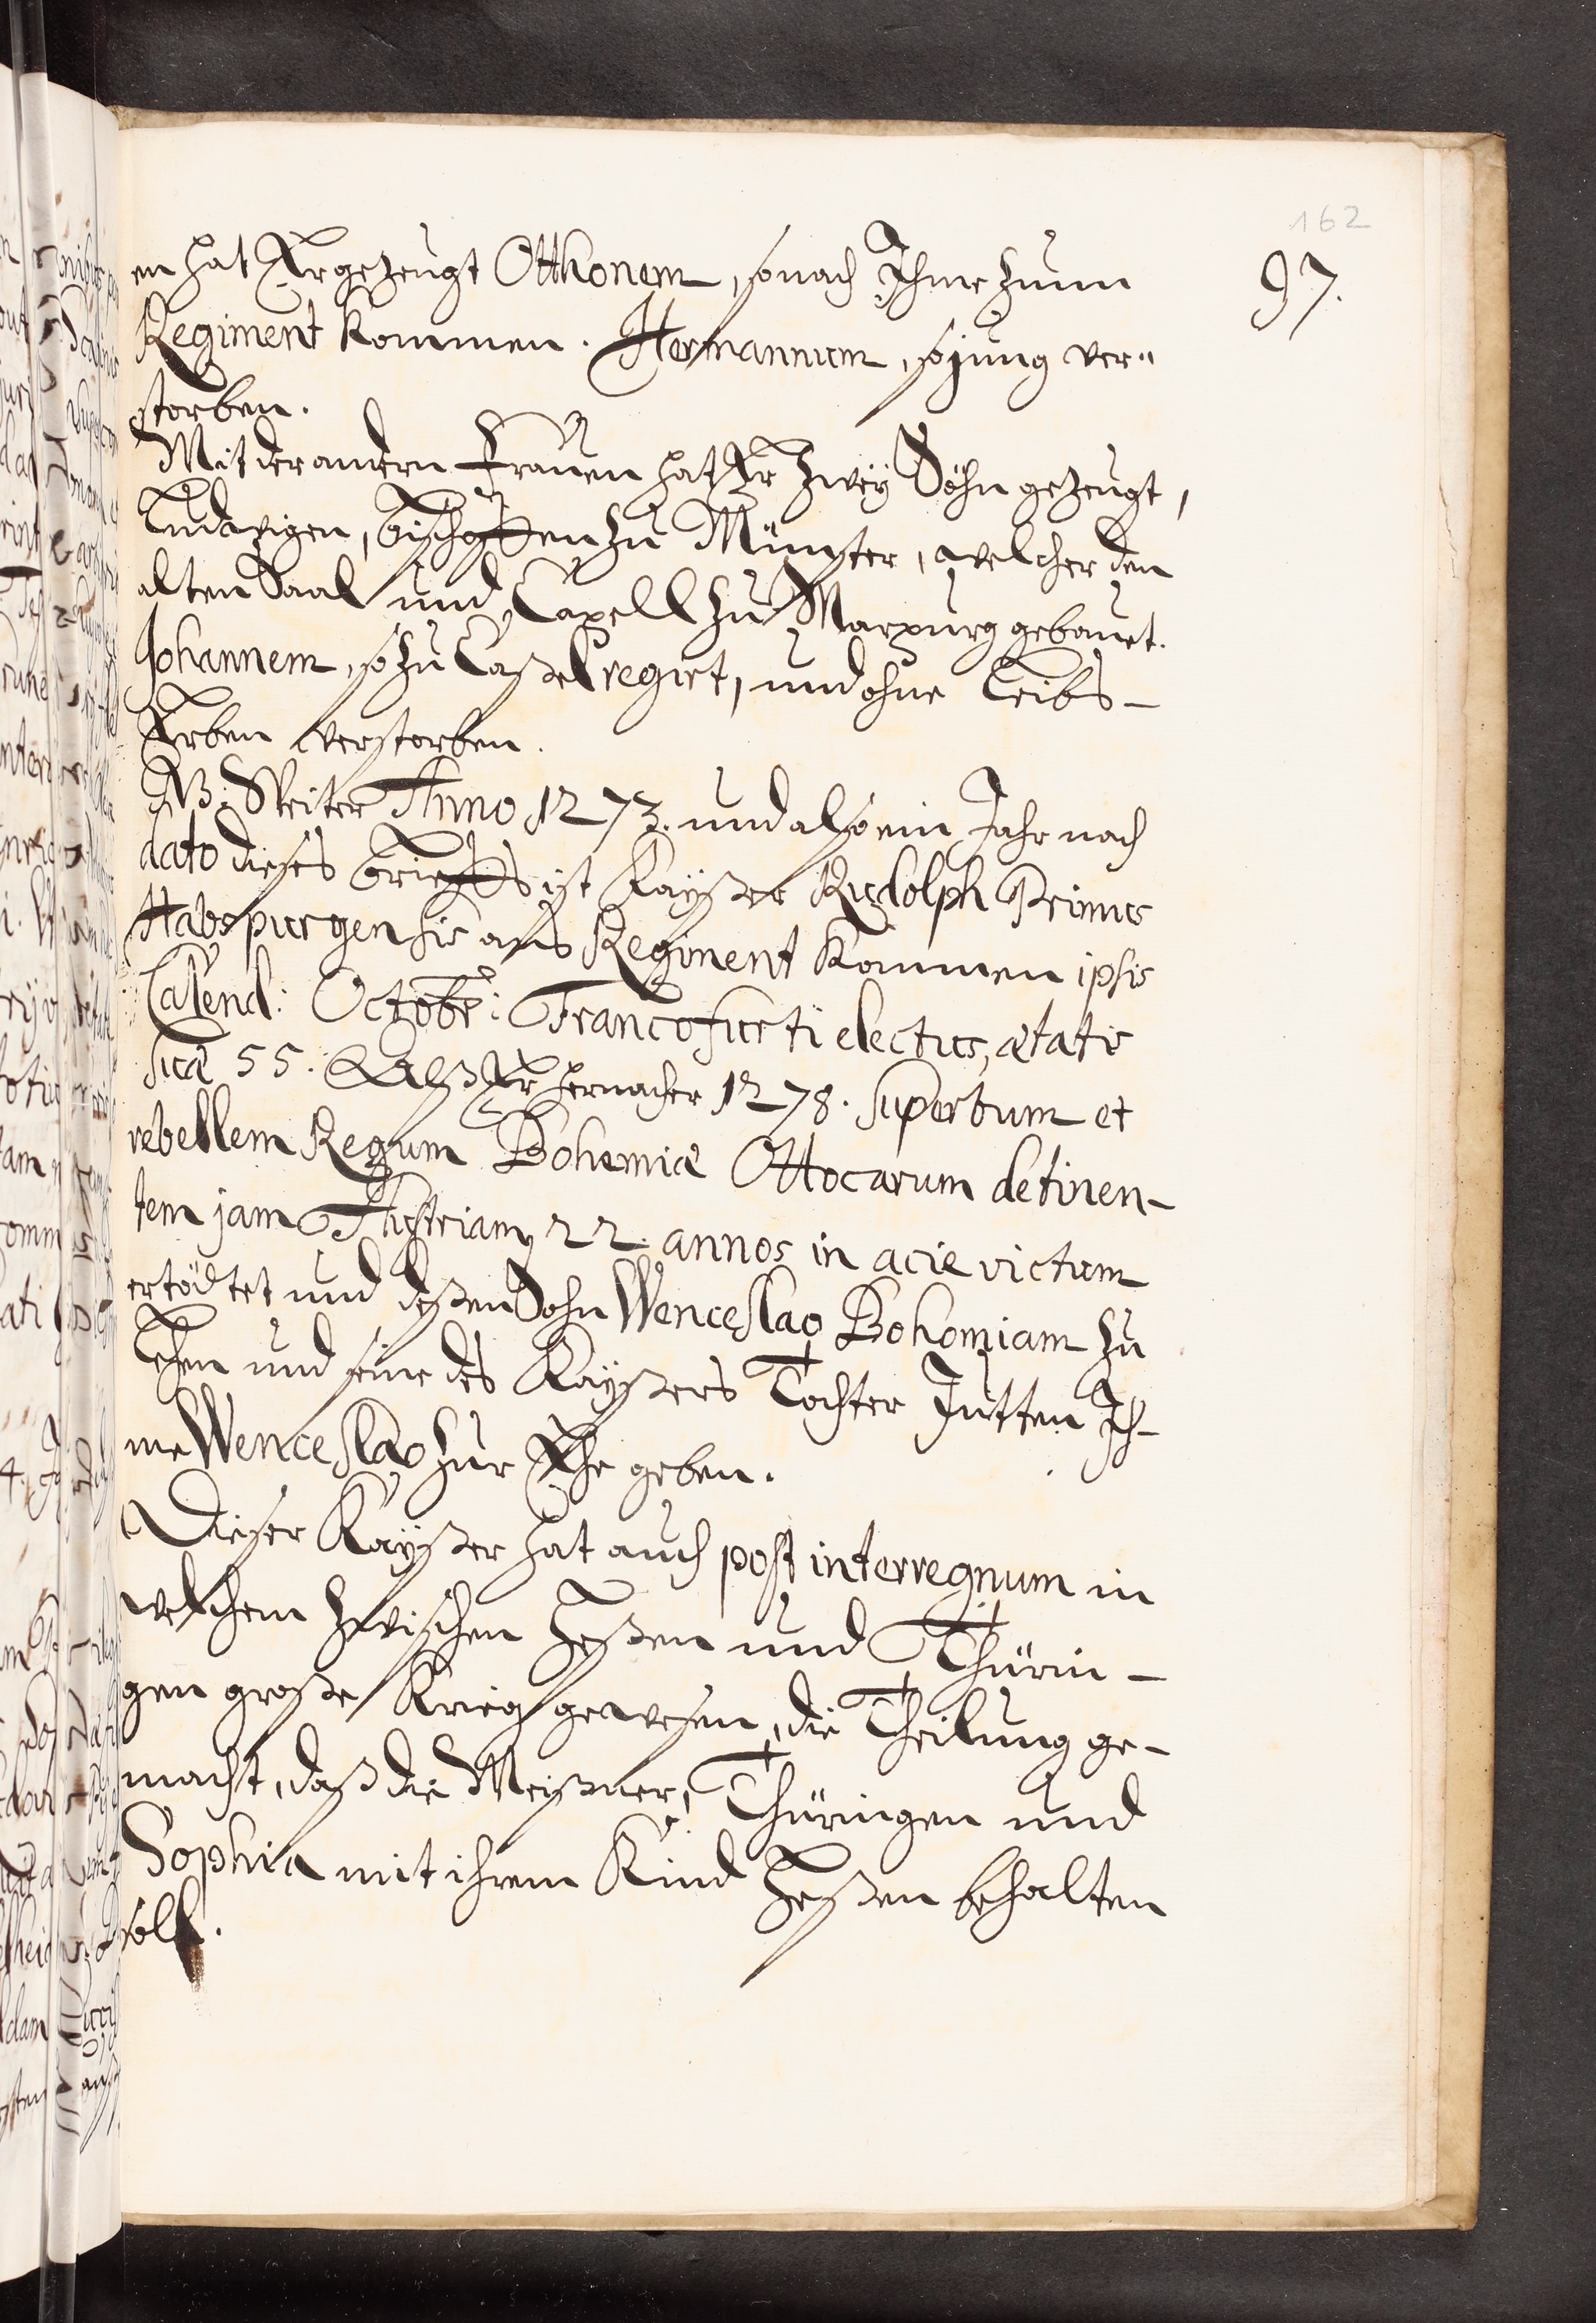 162
97.
en hat Er gezeugt Otthonem, so nach Ihme zum
Regiment kommen. Hermannum, so jung ver„
storben.
Mit der andern Frauen hat Er zweÿ Söhn gezeugt,
Ludwigen, bischoffen zu Münster, welcher den
alten Saal und Capell zu Marpurg gebauet.
Johannem, so zu Caßel regirt, und ohne Leibs-
Erben verstorben.
NB: Weiter Anno 1273. und also ein Jahr nach
dato dieses brieffs ist Kaÿßer Rudolph Primus
Habspurgensis ans Regiment kommen ipsis
Calend: Octobr: Francofurti electus, ætatis
suæ 55. Alß Er hernacher 1278. superbum et
rebellem Regum Bohemiæ Ottocarum detinen-
tem jam Austriam 22. annos in acie victum
ertödtet und deßen Sohn Wenceslao Bohomiam zu
Lehen und seine des Kaÿßers Tochter Jutten Ih-
me Wenceslao zur Ehe geben.
Dieser Kaÿßer hat auch post interregnum in
welchem zwischen Heßen und Thürin-
gen große Krieg gewesen, die Theilung ge-
macht, daß die Meißner, Thüringen und
Sophia mit ihrem Kind Heßen behalten
soll.